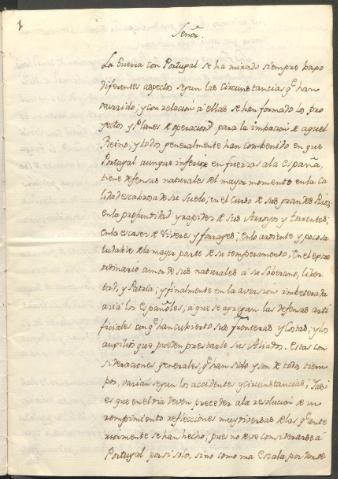 1
Señor.
La Guerra con Portugal se ha mirado siempre bajo
diferentes aspectos segun las Circunstancias qe. han
ocurrido; y con relacion à ellas se han formado los pro-
yectos y Planes de operaciones para la imbacion de aquel
Reino; y todos generalmente han combenido en que
Portugal aunque inferior en fuerzas a la España,
tiene defensas naturales del mayor momento en la Ca
lidad escabrosa de su Suelo, en el Curso de sus grandes Rios,
en la profundidad y rapidez de sus Arroyos y torrentes,
en la escasez de Viveres y forrages; en lo ardiente y poco sa
ludable de la mayor parte de su temperamento; en el extra
ordinario amor de sus naturales à su Soberano, liber
tad, y Patria; y finalmente en la aversion imbeterada
acia los Españoles, a que se agregan las defensas arti
ficiales con qe. han cubierto sus fronteras y Costas; y los
auxilios que pueden prestarle sus Aliados. Estas con
sideraciones generales qe. han sido y son de todos tiem
pos, varian segun los accidentes y circunstancias; Y asi
es que en el dia deven preceder à la resolucion de un
rompimiento reflecciones muy diversas de las qe. ante
riormente se han hecho; pues no deve considerarse à
Portugal por si solo, sino como una Escala, por donde